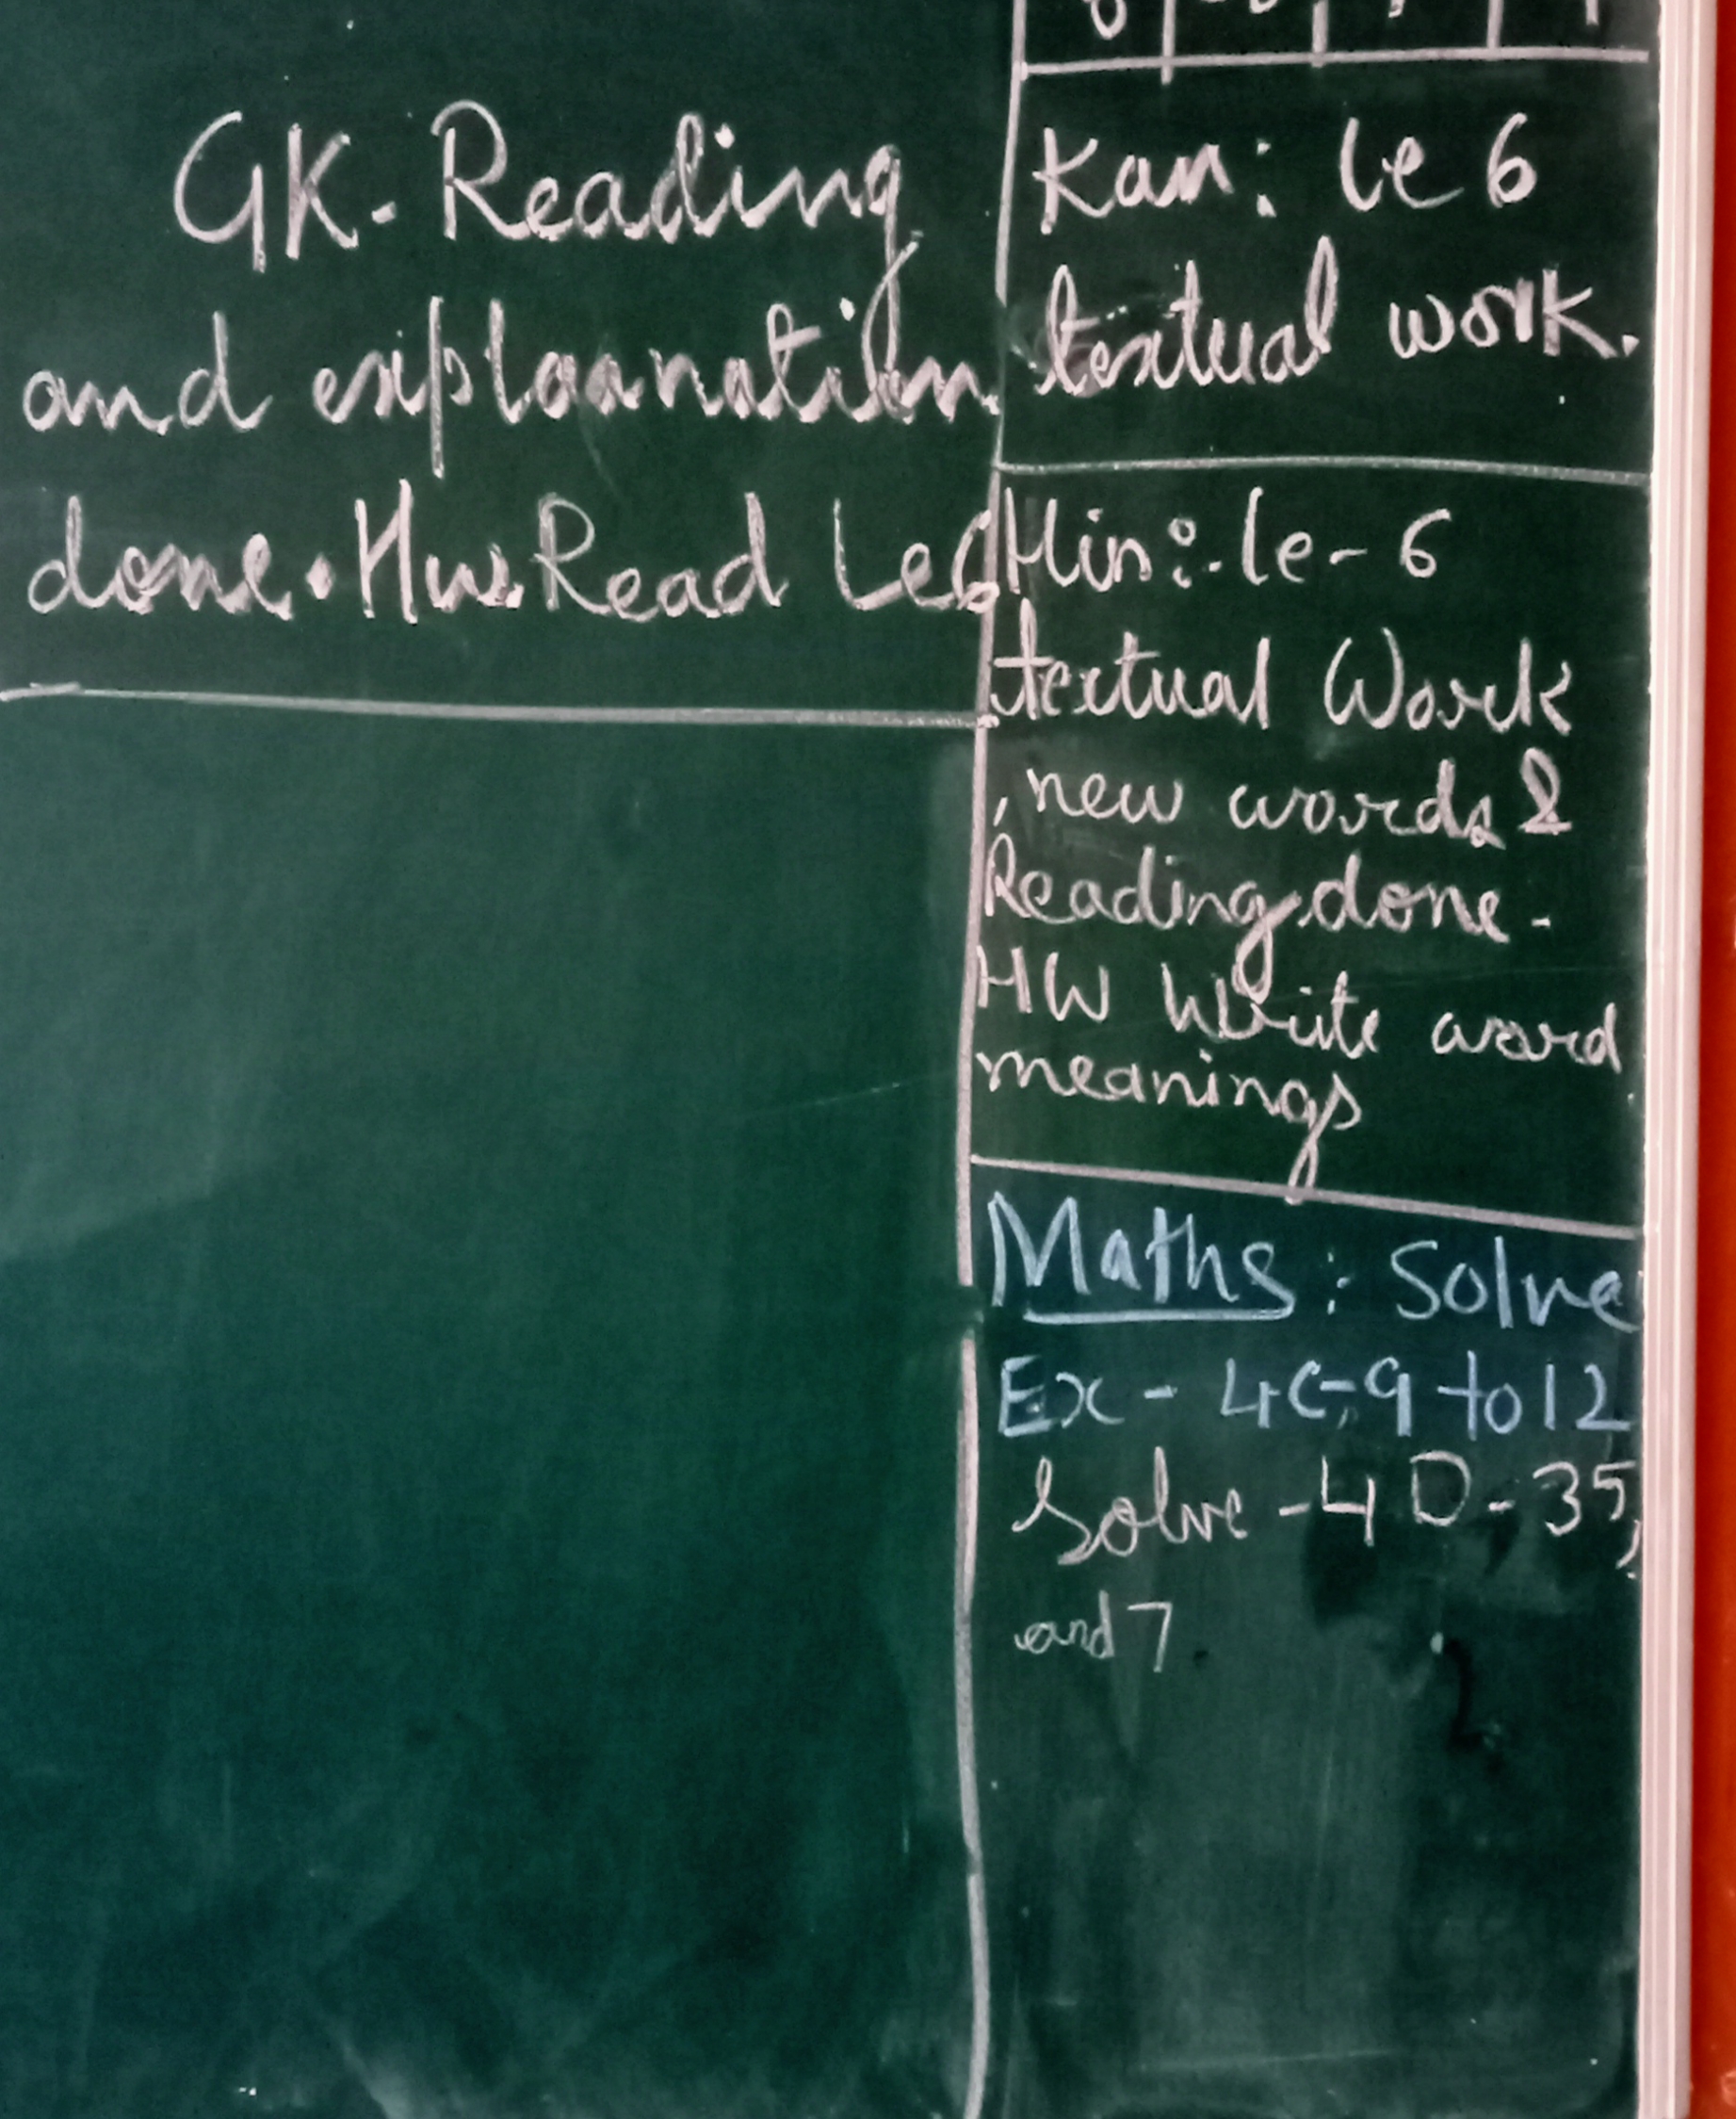 GK. Reading
and explaanation
done. Hw. Read Le6
Kan: le 6
textual work.
Hin:- le - 6
textual Work
, new words &
Reading done -
HW Write word
meanings
Maths : Solve
Ex - 4C-9 to 12
Solve - 4D - 35,
and 7